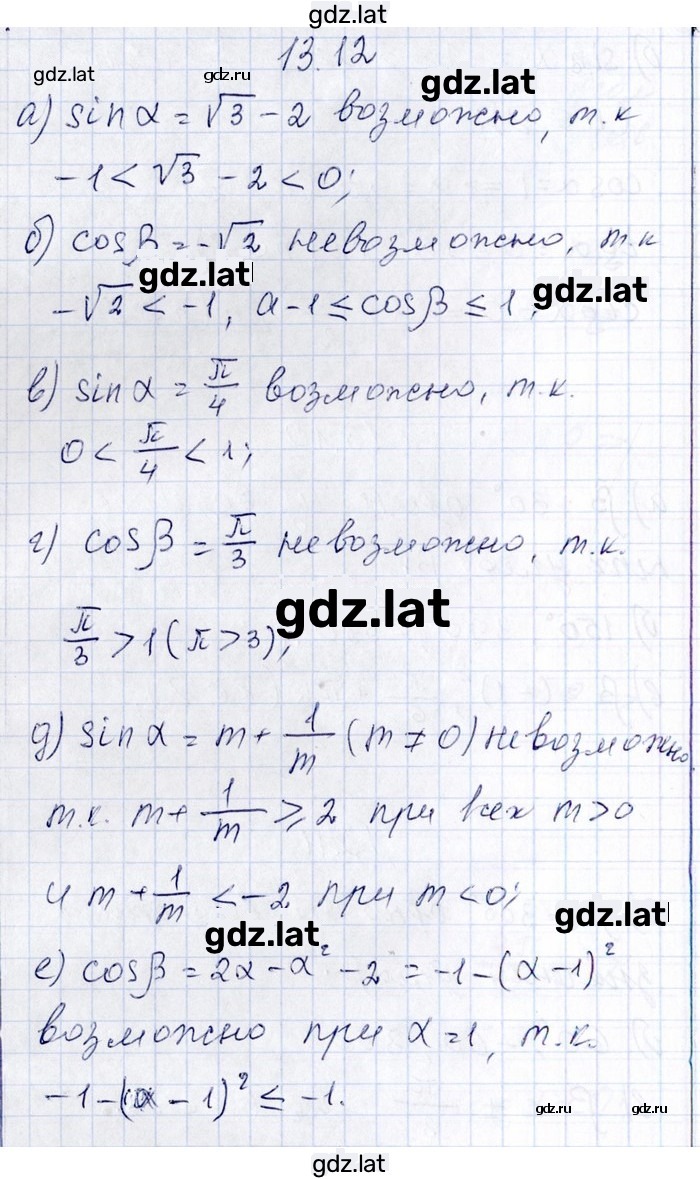 gdz.lat
13.12
gdz.lat gdz.ru gdz.lat
а) sin α = √3 - 2 возможно, т.к
-1 < √3 - 2 < 0;
б) cos β = -√2 невозможно, т.к
gdz.lat gdz.lat
-√2 < -1, а -1 ≤ cos β ≤ 1;
в) sin α = π/4 возможно, т.к.
0 < π/4 < 1;
г) cos β = π/3 невозможно, т.к.
gdz.lat
π/3 > 1 (π > 3);
д) sin α = m + 1/m (m ≠ 0) невозможно
т.к. m + 1/m ≥ 2 при всех m > 0
и m + 1/m < -2 при m < 0;
gdz.lat gdz.lat
е) cos β = 2α - α² - 2 = -1 - (α - 1)²
возможно при α = 1, т.к.
-1 - (α - 1)² ≤ -1.
gdz.ru gdz.ru
gdz.lat